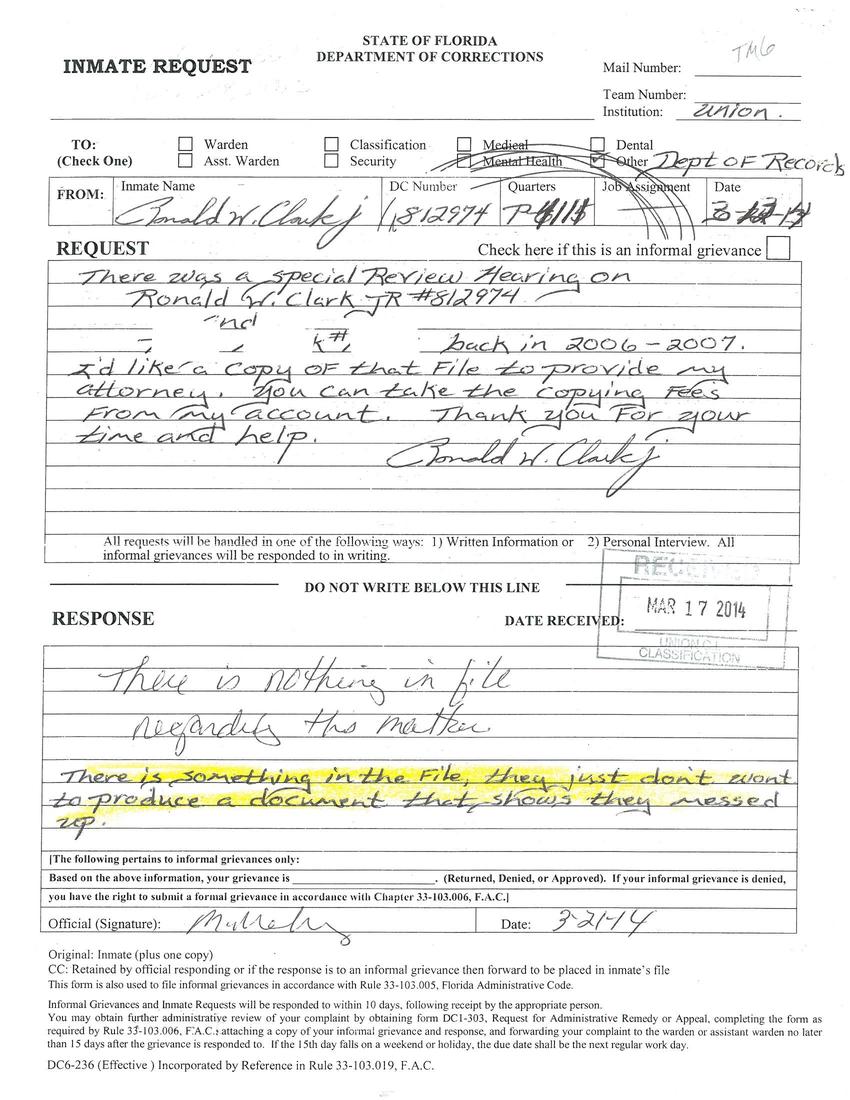 TM6
STATE OF FLORIDA
DEPARTMENT OF CORRECTIONS
INMATE REQUEST
Mail Number:
Team Number:
Institution: Union.
TO: Warden Classification Medical Dental
(Check One) Asst. Warden Security Mental Health Other Dept of Records
FROM: Inmate Name DC Number Quarters Job Assignment Date
Ronald W. Clark jr 812974
REQUEST Check here if this is an informal grievance
There was a special Review Hearing on
Ronald W. Clark JR #812974
and
back in 2006-2007.
I'd like a copy OF that File to provide my
attorney. You can take the copying Fees
From my account. Thank you For your
time and help.
Ronald W. Clark jr
All requests will be handled in one of the following ways: 1) Written Information or 2) Personal Interview. All
informal grievances will be responded to in writing.
DO NOT WRITE BELOW THIS LINE
RESPONSE DATE RECEIVED:
RECEIVED
MAR 17 2014
UNION C.I.
CLASSIFICATION
There is nothing in file
regarding this matter.
There is something in the File, they just don't want
to produce a document that shows they messed
up.
[The following pertains to informal grievances only:
Based on the above information, your grievance is ____________. (Returned, Denied, or Approved). If your informal grievance is denied,
you have the right to submit a formal grievance in accordance with Chapter 33-103.006, F.A.C.]
Official (Signature): Date: 3-21-14
Original: Inmate (plus one copy)
CC: Retained by official responding or if the response is to an informal grievance then forward to be placed in inmate's file
This form is also used to file informal grievances in accordance with Rule 33-103.005, Florida Administrative Code.
Informal Grievances and Inmate Requests will be responded to within 10 days, following receipt by the appropriate person.
You may obtain further administrative review of your complaint by obtaining form DC1-303, Request for Administrative Remedy or Appeal, completing the form as
required by Rule 33-103.006, F.A.C., attaching a copy of your informal grievance and response, and forwarding your complaint to the warden or assistant warden no later
than 15 days after the grievance is responded to. If the 15th day falls on a weekend or holiday, the due date shall be the next regular work day.
DC6-236 (Effective ) Incorporated by Reference in Rule 33-103.019, F.A.C.